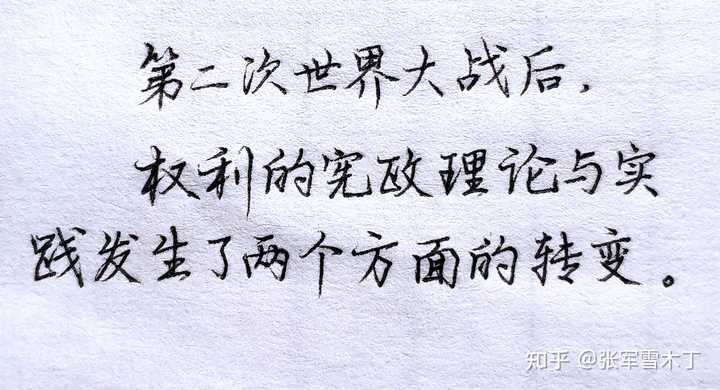 第二次世界大战后，
权利的宪政理论与实
践发生了两个方面的转变。
知乎 @张军雪木丁